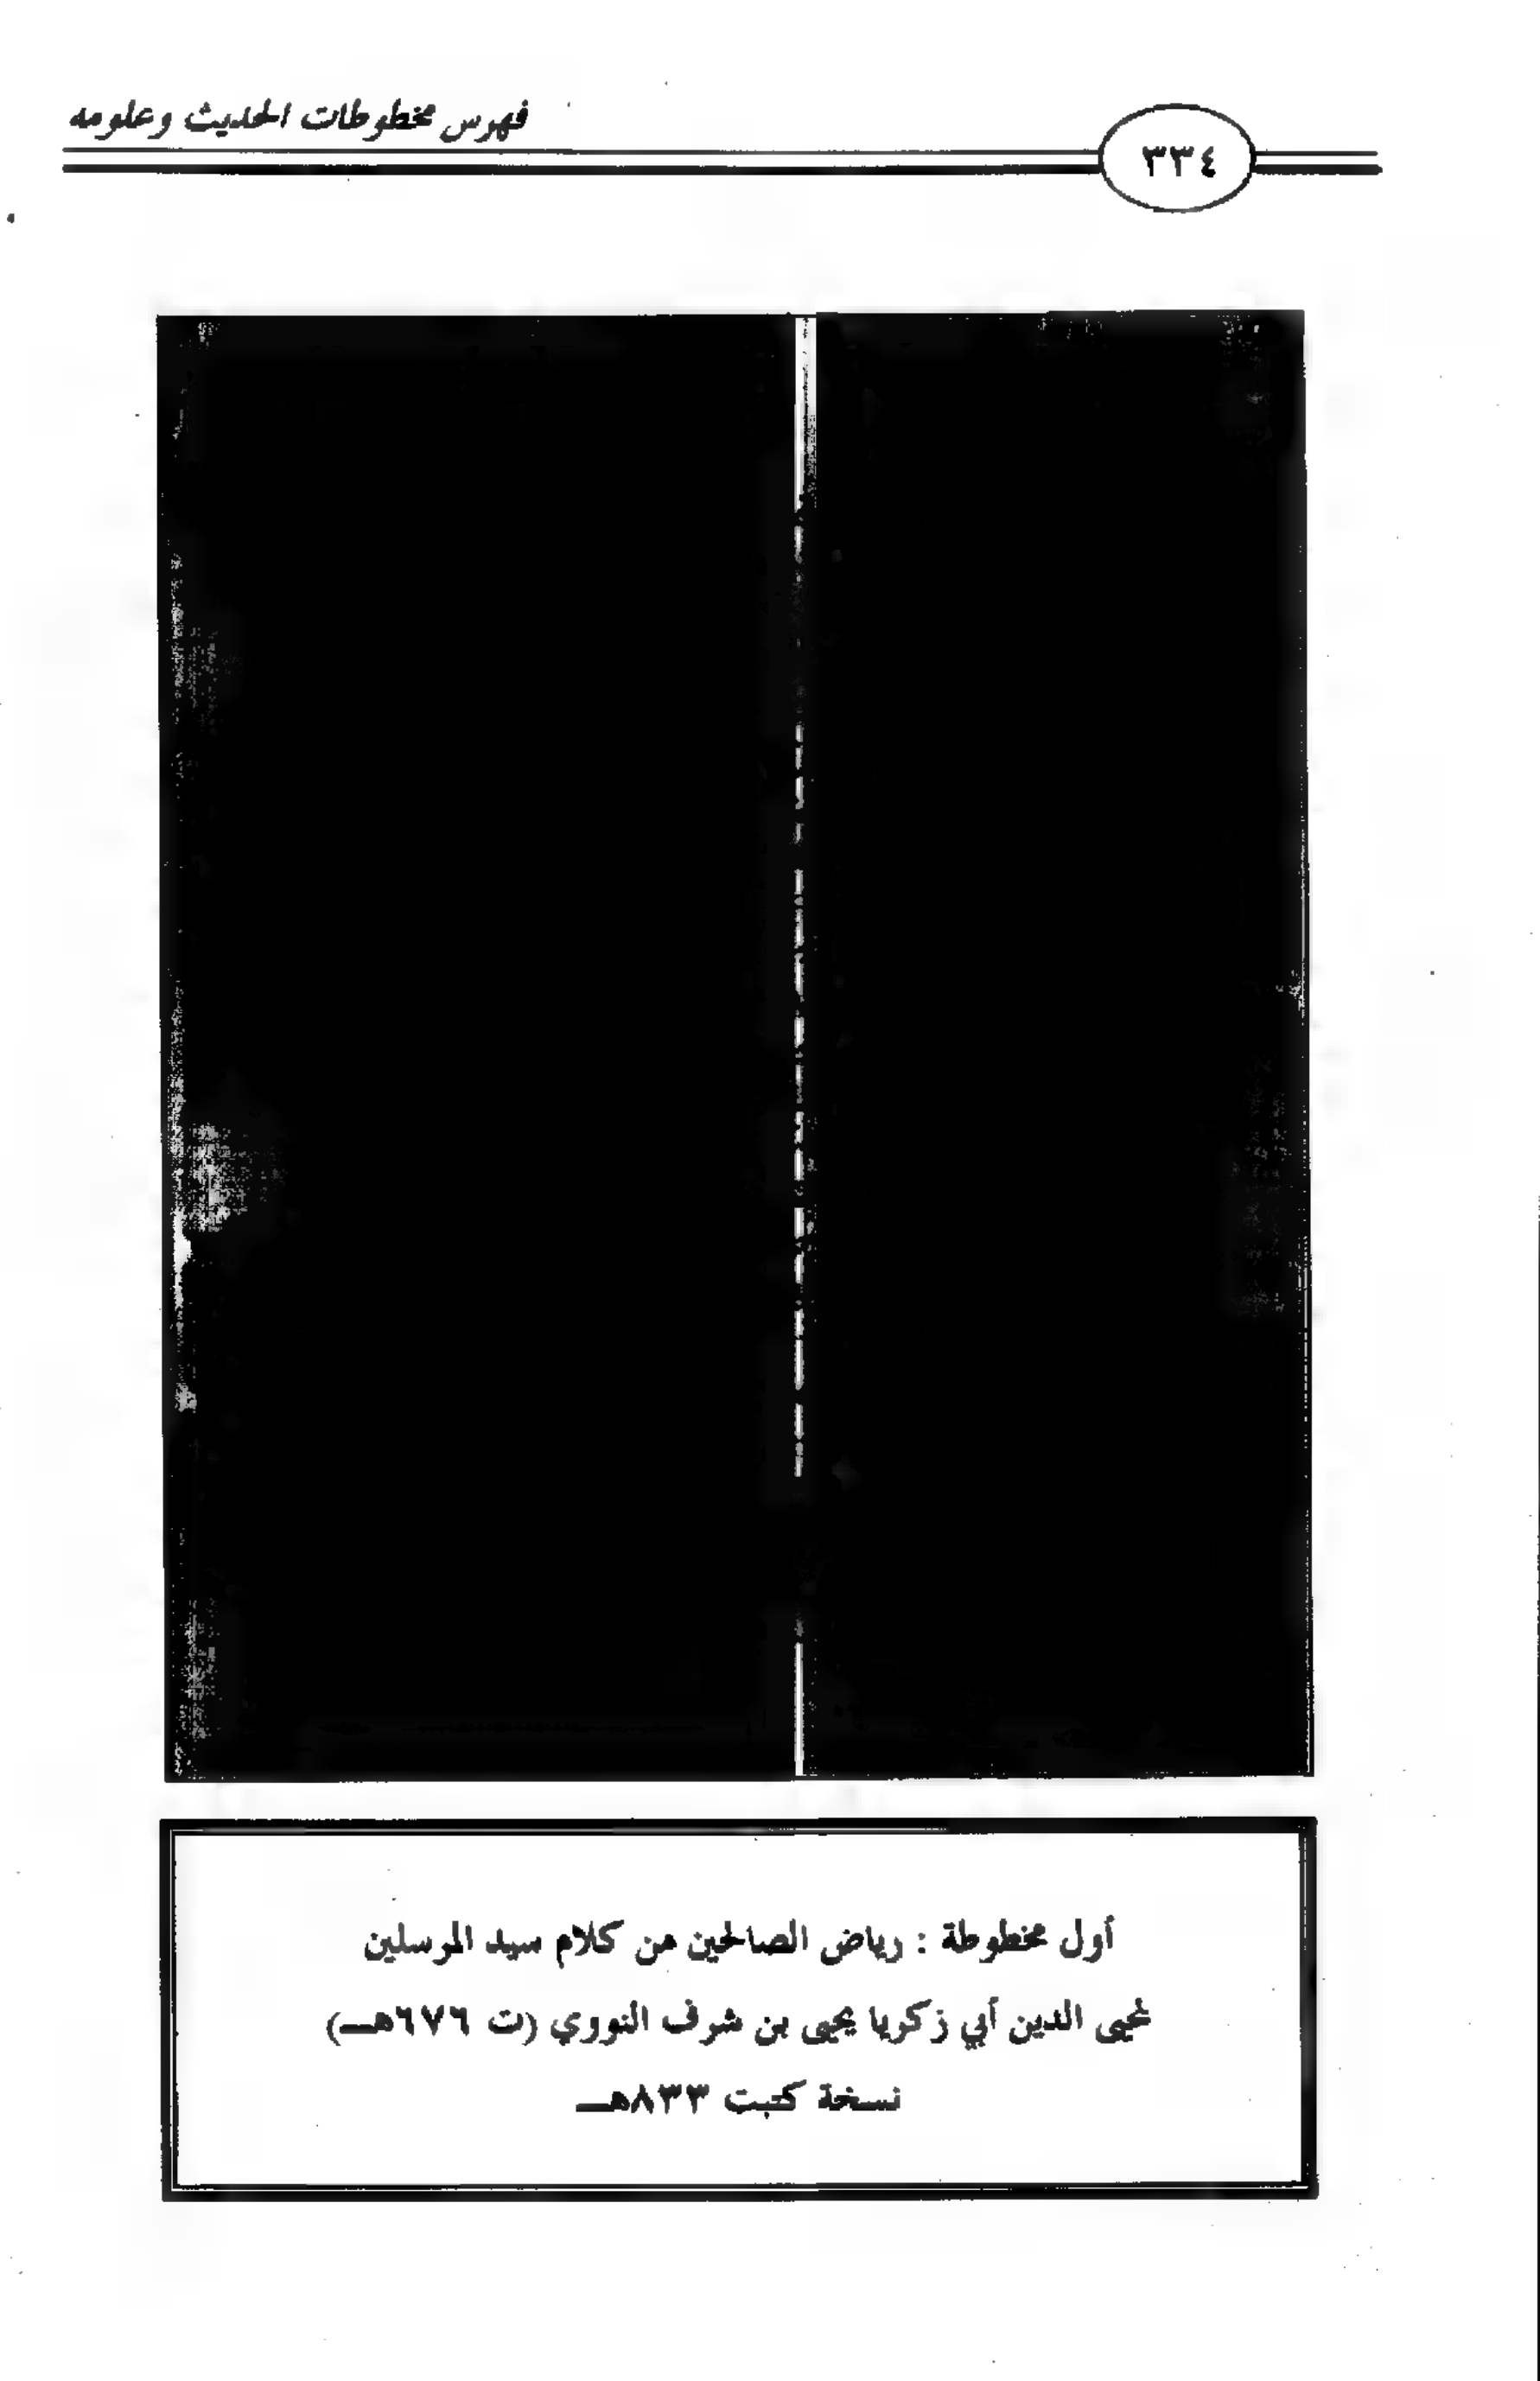 فهرس مخطوطات الحديث وعلومه
٣٣٤
أول مخطوطة : رياض الصالحين من كلام سيد المرسلين
لمحيى الدين أبي زكريا يحيى بن شرف النووي (ت ٦٧٦هـ)
نسخة كتبت ٨٣٣هـ